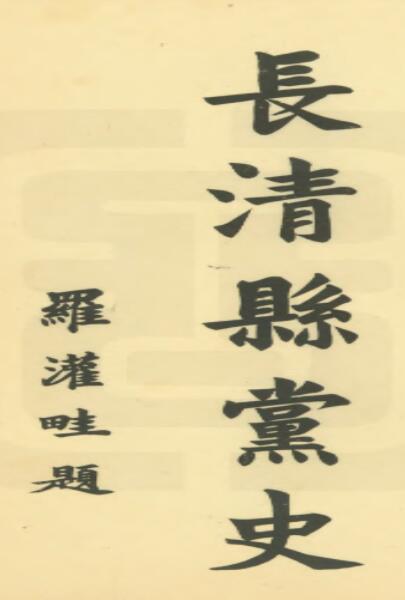 長清縣黨史
羅灌畦題